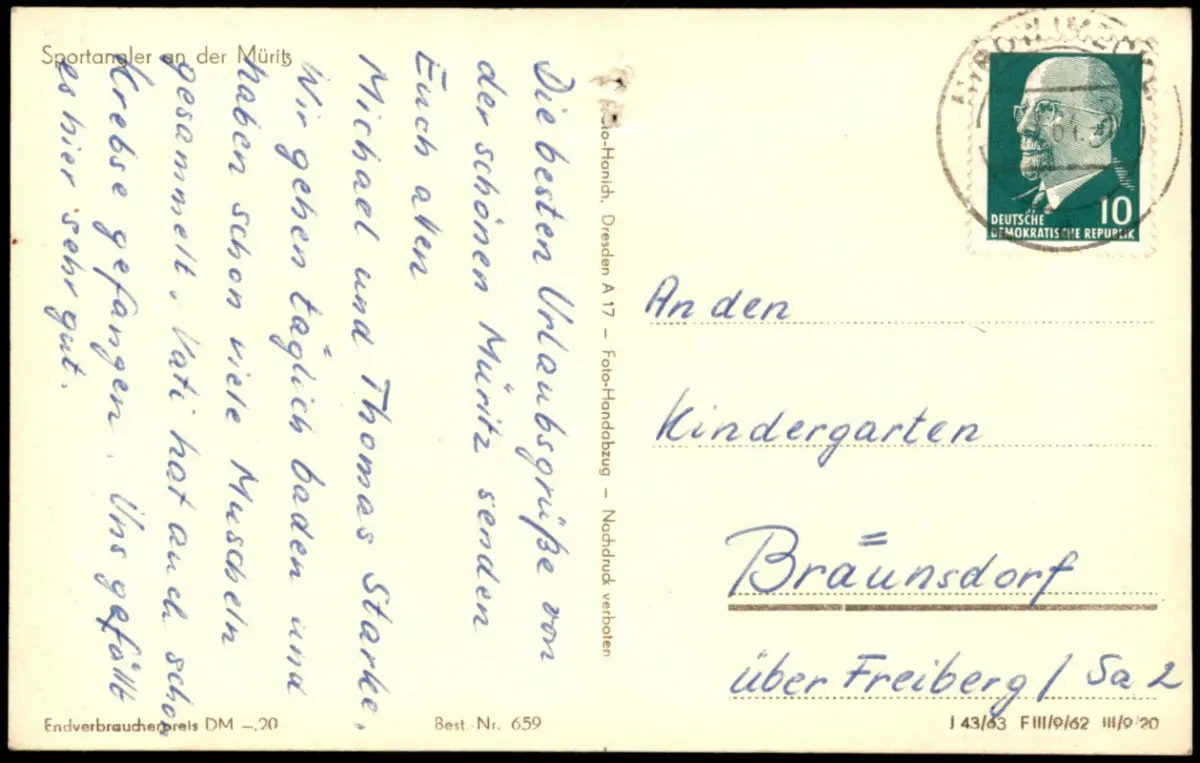 Sportangler an der Müritz
Die besten Urlaubsgrüße von
der schönen Müritz senden
Euch allen
Michael und Thomas Starke.
Wir gehen täglich baden und
haben schon viele Muscheln
gesammelt. Vati hat auch schon
Krebse gefangen. Uns gefällt
es hier sehr gut.
Endverbraucherpreis DM –.20
Best.-Nr. 659
Foto-Hanich, Dresden A 17 – Foto-Handabzug – Nachdruck verboten
10
DEUTSCHE
DEMOKRATISCHE REPUBLIK
An den
Kindergarten
Bräunsdorf
über Freiberg / Sa 2
J 43/63 F III/9/62 III/9 20